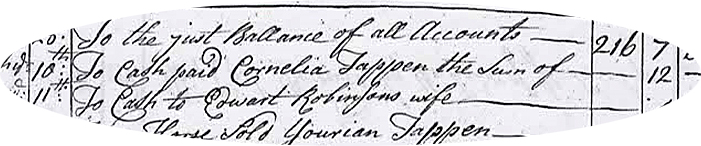 To the just Ballance of all Accounts — 216 7
10th To Cash paid Cornelia Tappen the Sum of — 12 —
11th To Cash to Edwart Robinsons wife —
Horse Sold Yourian Tappen —